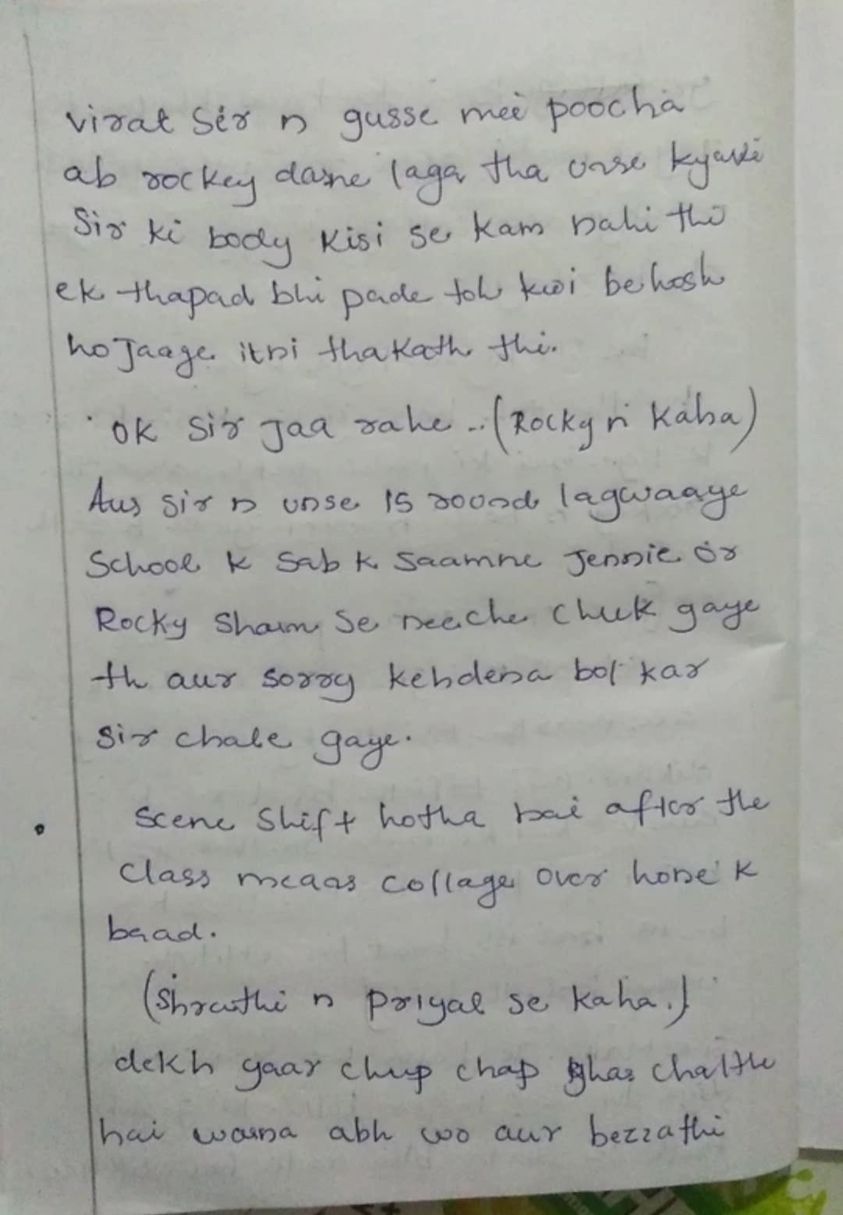 virat Sir n gusse mei poocha
ab rockey darne laga tha unse kyuki
Sir ki body kisi se kam nahi thi
ek thapad bhi pade toh kwi behosh
ho Jaage itni thakath thi.
OK Sir Jaa rahe ..(Rocky n kaha)
Aur sir n unse 15 round lagwaaye
School k sab k saamne Jennie or
Rocky Sharm se neeche chuk gaye
th aur sorry kehdena bol kar
Sir chale gaye.
Scene Shift hotha hai after the
class means collage over hone k
baad.
(Shruthi n priyal se kaha.)
dekh yaar chup chap ghar chalthe
hai warna abh wo aur bezzathi